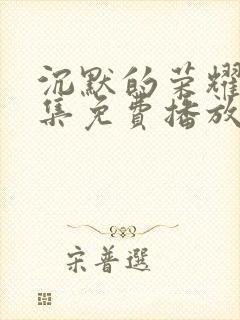 沉默的荣耀
集免費播放
宋普選